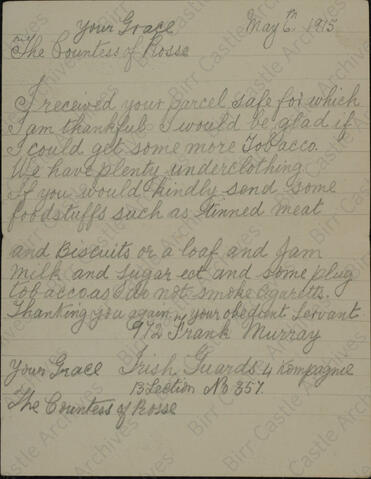 Your Grace May 6th 1915
The Countess of Rosse
I received your parcel safe for which
I am thankful I would be glad if
I could get some more Tobacco.
We have plenty underclothing
If you would kindly send some
foodstuffs such as tinned meat
and Biscuits or a loaf and Jam
Milk and Sugar ect and some plug
tobacco as I do not smoke Cigaretts.
Thanking you again your obedient Servant
972 Frank Murray
Your Grace Irish Guards 4 Kompagnie
13 Section No 357.
The Countess of Rosse
Birr Castle Archives